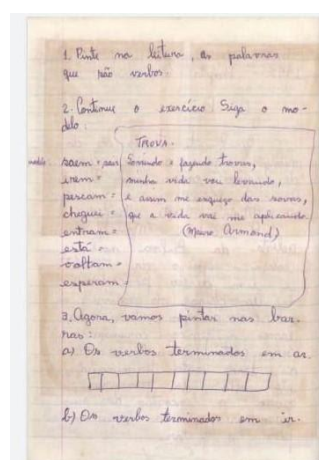 1. Pinte na leitura, as palavras
que são verbos.
2. Continue o exercício. Siga o mo-
delo.
TROVA.
modêlo saem = sair
irem =
pescam =
cheguei =
entram =
está =
voltam =
esperam =
Sorrindo e fazendo trovas,
minha vida vou levando,
e assim me esqueço das sovas,
que a vida vai me aplicando
(Mauro Armond)
3. Agora, vamos pintar nas bar-
ras:
a) Os verbos terminados em ar.
b) Os verbos terminados em ir.